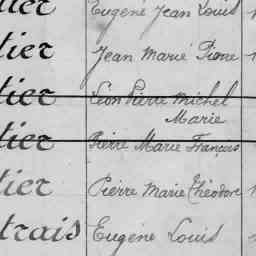 tier Eugené Jean Louis
tier Jean Marie Pierre
tier Léon Pierre Michel
Marie
tier Pierre Marie François
tier Pierre Marie Théodore
trais Eugéne Louis